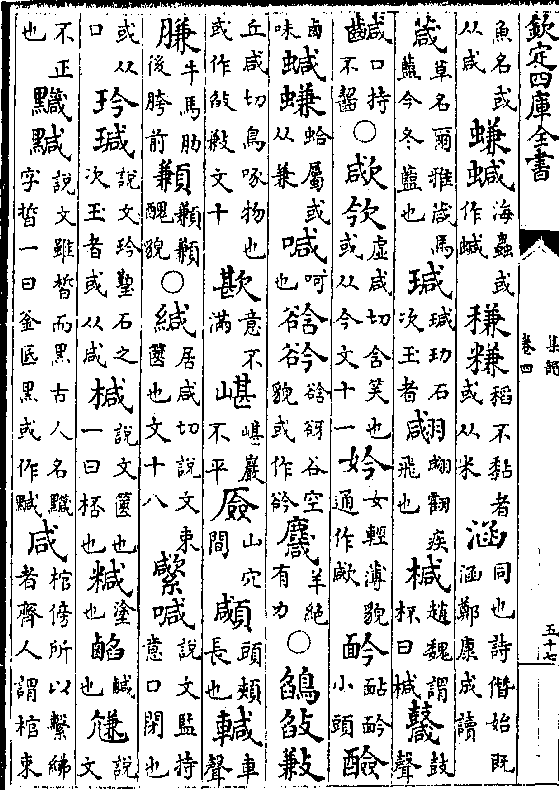 欽定四庫全書
集韻
卷四
五十七
魚名或从咸 螊蝛 海蟲或作鹹 稴䊠 稻不黏者或从米 涵 同也詩僭始既涵鄭康成讀
葴 草名爾雅葴馬藍今冬藍也 瑊 瑊玏石次玉者 翱翻疾飛也 椷 趙魏謂杯曰椷 鼓聲
口持不齧 ○ 欦 虛咸切含笑也或从今文十一 㚸 女輕薄貌通作 小頭 醶
鹵味 蝛螊 蛤屬或从兼 喊 呵也 谽 谽谺谷空貌或作 麙 羊絕有力 ○ 鵮
丘咸切鳥啄物也或作 文十 歁 意不滿 嵁 嵁巖不平 山穴間 頭頰長也 車聲
膁 牛馬肋後胯前 醜貌 ○ 緘 居咸切說文束篋也文十八 喊 說文監持意口閉也
或从口 玪瑊 說文玪塾石之次玉者或从咸 椷 說文篋也一曰桮也 塗也 鹹也 尲 說文
不正也 黬 說文雖晳而黑古人名黬字晳一曰釜底黑或作 咸 棺傍所以繫紼者齊人謂棺束